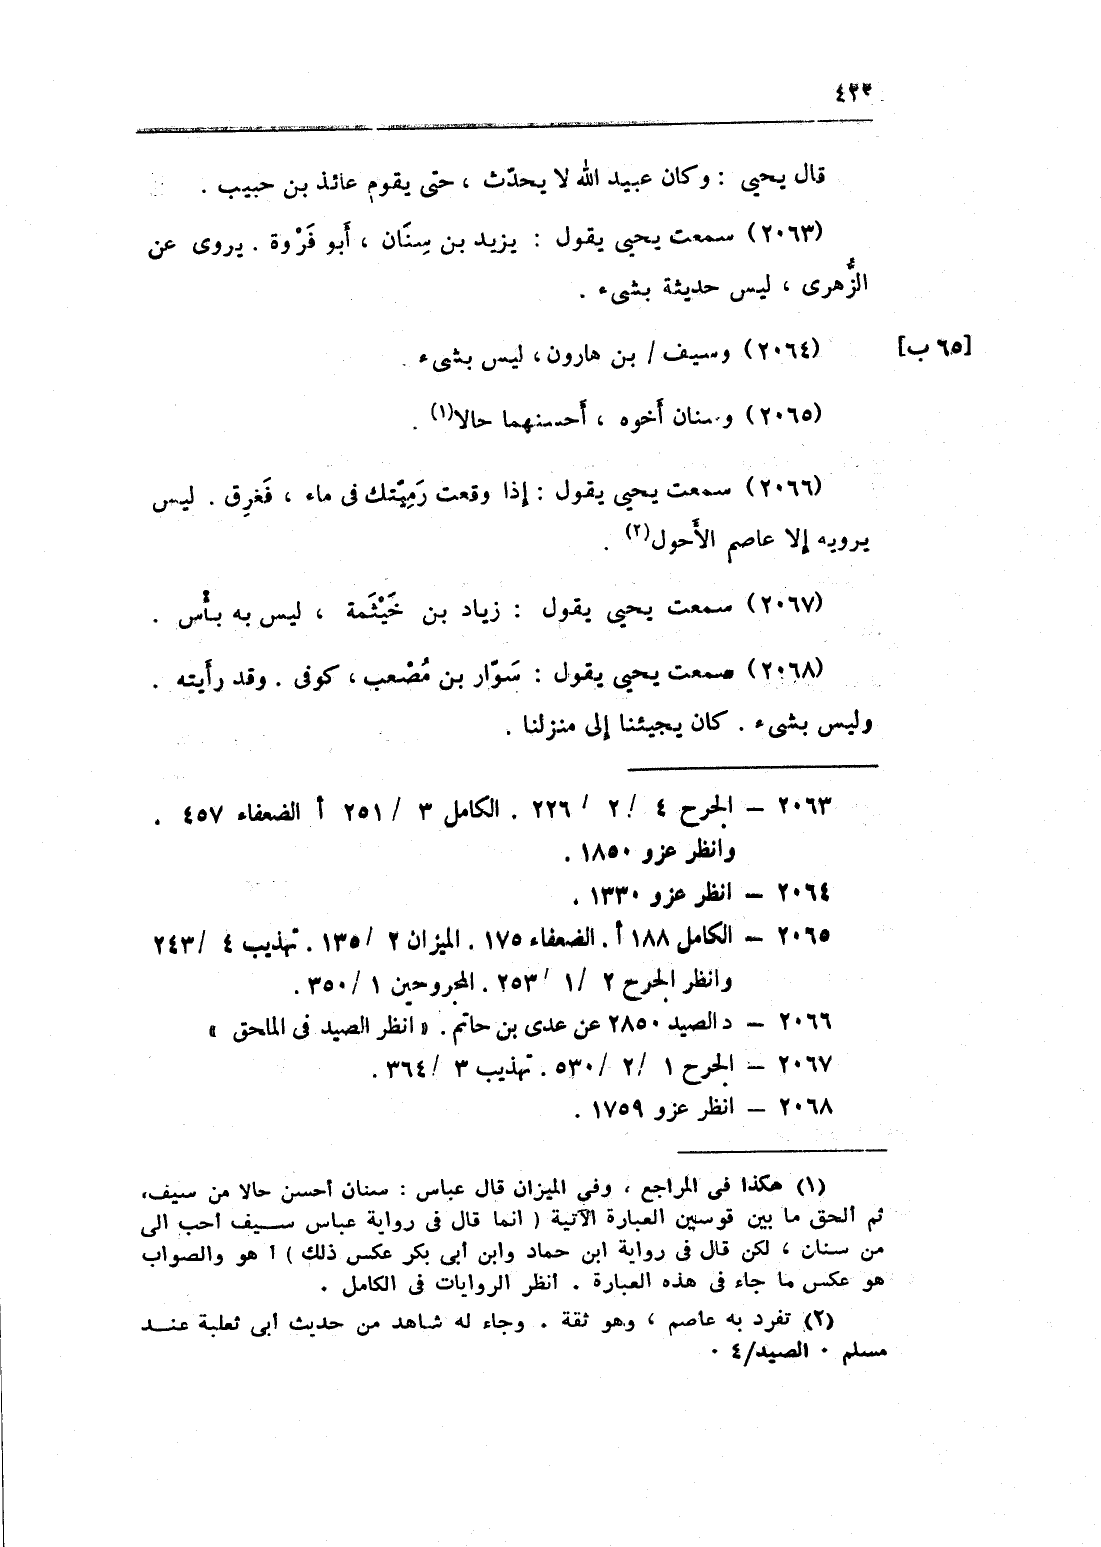 ٤٣٣
قال يحيى : وكان عبيد الله لا يحدّث ، حتى يقوم عائذ بن حبيب .
(٢٠٦٣) سمعت يحيى يقول : يزيد بن سِنَان ، أَبو فَرْوة . يروى عن
الزُّهرى ، ليس حديثة بشىء .
[٦٥ ب]
(٢٠٦٤) وسيف / بن هارون، ليس بشىء .
(٢٠٦٥) وسنان أَخوه ، أَحسنهما حالا(١) .
(٢٠٦٦) سمعت يحيى يقول : إذا وقعت رَمِيّتك فى ماء ، فَغرِق . ليس
يرويه إلا عاصم الأَحول(٢) .
(٢٠٦٧) سمعت يحيى يقول : زياد بن خَيْثَمة ، ليس به بأْس .
(٢٠٦٨) سمعت يحيى يقول : سَوّار بن مُصْعب ، كوفى . وقد رأَيته .
وليس بشىء . كان يجيئنا إلى منزلنا .
٢٠٦٣ – الجرح ٤ / ٢ / ٢٢٦ . الكامل ٣ / ٢٥١ أ الضعفاء ٤٥٧ .
وانظر عزو ١٨٥٠ .
٢٠٦٤ – انظر عزو ١٣٣٠ .
٢٠٦٥ – الكامل ١٨٨ أ . الضعفاء ١٧٥ . الميزان ٢ / ١٣٥ . تهذيب ٤ / ٢٤٣
وانظر الجرح ٢ / ١ / ٢٥٣ . المجروحين ١ / ٣٥٠ .
٢٠٦٦ – د الصيد ٢٨٥٠ عن عدى بن حاتم . « انظر الصيد فى الملحق »
٢٠٦٧ – الجرح ١ / ٢ / ٥٣٠ . تهذيب ٣ / ٣٦٤ .
٢٠٦٨ – انظر عزو ١٧٥٩ .
(١) هكذا فى المراجع ، وفي الميزان قال عباس : سنان أحسن حالا من سيف،
ثم ألحق ما بين قوسين العبارة الآتية ( انما قال فى رواية عباس سـيف أحب الى
من سنان ، لكن قال فى رواية ابن حماد وابن أبى بكر عكس ذلك ) أ هو والصواب
هو عكس ما جاء فى هذه العبارة . أنظر الروايات فى الكامل .
(٢) تفرد به عاصم ، وهو ثقة . وجاء له شاهد من حديث أبى ثعلبة عنـد
مسلم . الصيد/٤ .